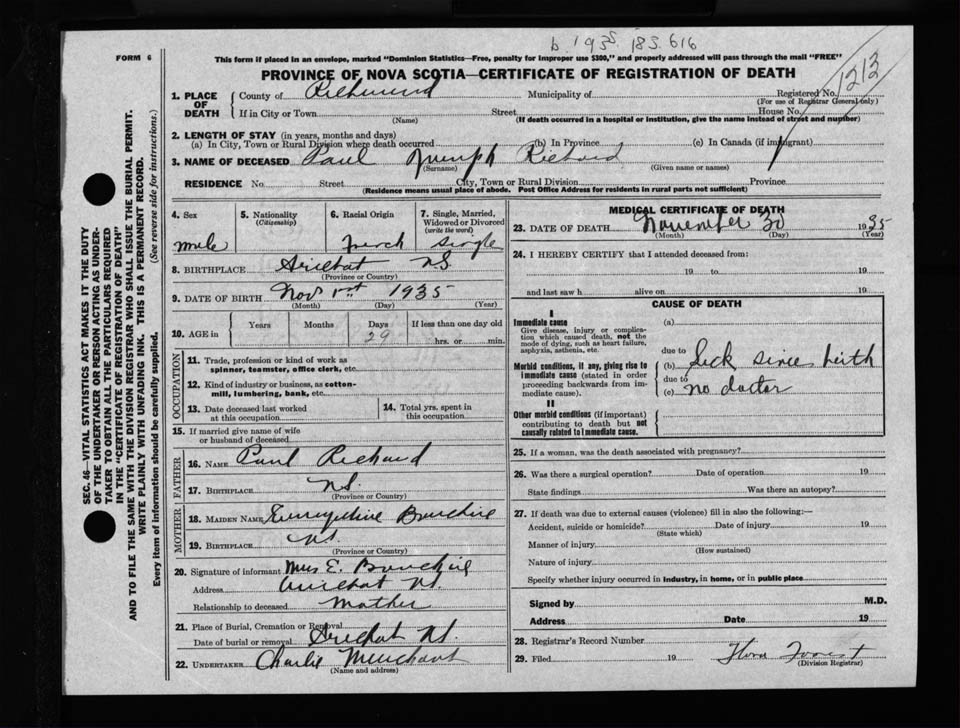 b. 1935. 183.616
FORM 6
This form if placed in an envelope, marked "Dominion Statistics—Free, penalty for improper use $300," and properly addressed will pass through the mail "FREE"
PROVINCE OF NOVA SCOTIA—CERTIFICATE OF REGISTRATION OF DEATH
1213
1. PLACE OF DEATH
County of Richmond Municipality of Registered No.
(For use of Registrar General only)
If in City or Town Street House No.
(Name) (If death occurred in a hospital or institution, give the name instead of street and number)
2. LENGTH OF STAY (in years, months and days)
(a) In City, Town or Rural Division where death occurred (b) In Province (c) In Canada (if immigrant)
3. NAME OF DECEASED Paul Joseph Richard
(Surname) (Given name or names)
RESIDENCE No. Street City, Town or Rural Division Province
(Residence means usual place of abode. Post Office Address for residents in rural parts not sufficient)
4. Sex
male
5. Nationality
(Citizenship)
6. Racial Origin
french
7. Single, Married, Widowed or Divorced
(write the word)
single
8. BIRTHPLACE Arichat N.S.
(Province or Country)
9. DATE OF BIRTH Nov 1st 1935
(Month) (Day) (Year)
10. AGE in
Years Months Days If less than one day old
29 hrs. or min.
OCCUPATION
11. Trade, profession or kind of work as
spinner, teamster, office clerk, etc.
12. Kind of industry or business, as cotton-
mill, lumbering, bank, etc.
13. Date deceased last worked
at this occupation
14. Total yrs. spent in
this occupation
15. If married give name of wife
or husband of deceased
FATHER
16. NAME Paul Richard
17. BIRTHPLACE N.S.
(Province or Country)
MOTHER
18. MAIDEN NAME
19. BIRTHPLACE N.S.
(Province or Country)
20. Signature of informant Mrs E.
Address Arichat N.S.
Relationship to deceased Mother
21. Place of Burial, Cremation or Removal
Date of burial or removal Arichat N.S.
22. UNDERTAKER Charlie Merchant
(Name and address)
MEDICAL CERTIFICATE OF DEATH
23. DATE OF DEATH November 30 1935
(Month) (Day) (Year)
24. I HEREBY CERTIFY that I attended deceased from:
19 to 19
and last saw h alive on 19
CAUSE OF DEATH
I
Immediate cause
Give disease, injury or complica-
tion which caused death, not the
mode of dying, such as heart failure,
asphyxia, asthenia, etc.
(a)
due to
Morbid conditions, if any, giving rise to
immediate cause (stated in order
proceeding backwards from im-
mediate cause).
(b) Sick since birth
due to
(c) no doctor
II
Other morbid conditions (if important)
contributing to death but not
causally related to immediate cause.
25. If a woman, was the death associated with pregnancy?
26. Was there a surgical operation? Date of operation 19
State findings Was there an autopsy?
27. If death was due to external causes (violence) fill in also the following:—
Accident, suicide or homicide? Date of injury 19
(State which)
Manner of injury
(How sustained)
Nature of injury
Specify whether injury occurred in industry, in home, or in public place
Signed by M.D.
Address Date 19
28. Registrar's Record Number
29. Filed 19 Flora Forest
(Division Registrar)
SEC. 46—VITAL STATISTICS ACT MAKES IT THE DUTY
OF THE UNDERTAKER OR PERSON ACTING AS UNDER-
TAKER TO OBTAIN ALL THE PARTICULARS REQUIRED
IN THE "CERTIFICATE OF REGISTRATION OF DEATH"
AND TO FILE THE SAME WITH THE DIVISION REGISTRAR WHO SHALL ISSUE THE BURIAL PERMIT.
WRITE PLAINLY WITH UNFADING INK. THIS IS A PERMANENT RECORD.
Every item of information should be carefully supplied. (See reverse side for instructions.)